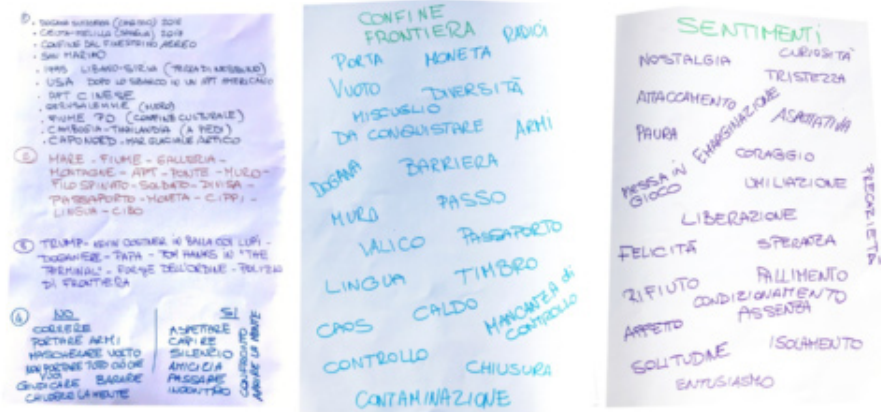 1. DOGANA SVIZZERA (CHIASSO) 2018
. CEUTA-MELILLA (SPAGNA) 2017
. CONFINE DAL FINESTRINO AEREO
. SAN MARINO
. 1995 LIBANO-SIRIA (TERRA DI NESSUNO)
. USA DOPO LO SBARCO IN UN APT AMERICANO
. APT CINESE
. GERUSALEMME (MURO)
. FIUME PO (CONFINE CULTURALE)
. CAMBOGIA-THAILANDIA (A PIEDI)
. CAPONORD-MAR GLACIALE ARTICO
2 MARE - FIUME - GALLERIA -
MONTAGNE - APT - PONTE - MURO -
FILO SPINATO - SOLDATO - DIVISA -
PASSAPORTO - MONETA - CIPPI -
LINGUA - CIBO
3 TRUMP - KEVIN COSTNER IN BALLA COI LUPI -
DOGANIERE - PAPA - TOM HANKS IN "THE
TERMINAL" - FORZE DELL'ORDINE - POLIZIA
DI FRONTIERA
4 NO
CORRERE
PORTARE ARMI
MASCHERARE VOLTO
NON PORTARE TUTTO CIÒ CHE
VUOI
GIUDICARE BARARE
CHIUDERE LA MENTE
SI
ASPETTARE
CAPIRE
SILENZIO
AMICIZIA
PASSARE
INCONTRO
CONFRONTO
APRIRE LA MENTE
CONFINE
FRONTIERA
RADICI
PORTA MONETA
VUOTO DIVERSITÀ
MISCUGLIO
DA CONQUISTARE ARMI
DOGANA BARRIERA
MURO PASSO
VALICO PASSAPORTO
LINGUA TIMBRO
CAOS CALDO
MANCANZA di
CONTROLLO
CONTROLLO CHIUSURA
CONTAMINAZIONE
SENTIMENTI
NOSTALGIA CURIOSITÀ
TRISTEZZA
ATTACCAMENTO
EMARGINAZIONE
ASPETTATIVA
PAURA
CORAGGIO
MESSA IN
GIOCO
UMILIAZIONE
PRECARIETÀ
LIBERAZIONE
FELICITÀ SPERANZA
RIFIUTO FALLIMENTO
CONDIZIONAMENTO
AFFETTO ASSENZA
SOLITUDINE ISOLAMENTO
ENTUSIASMO